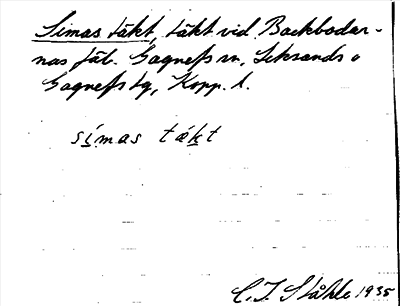 Simas täkt, täkt vid Backbodar-
nas fäb. Gagnefs sn, Leksands o
Gagnefs tg, Kopp. l.
símas tákt
C. I. Ståhle 1935